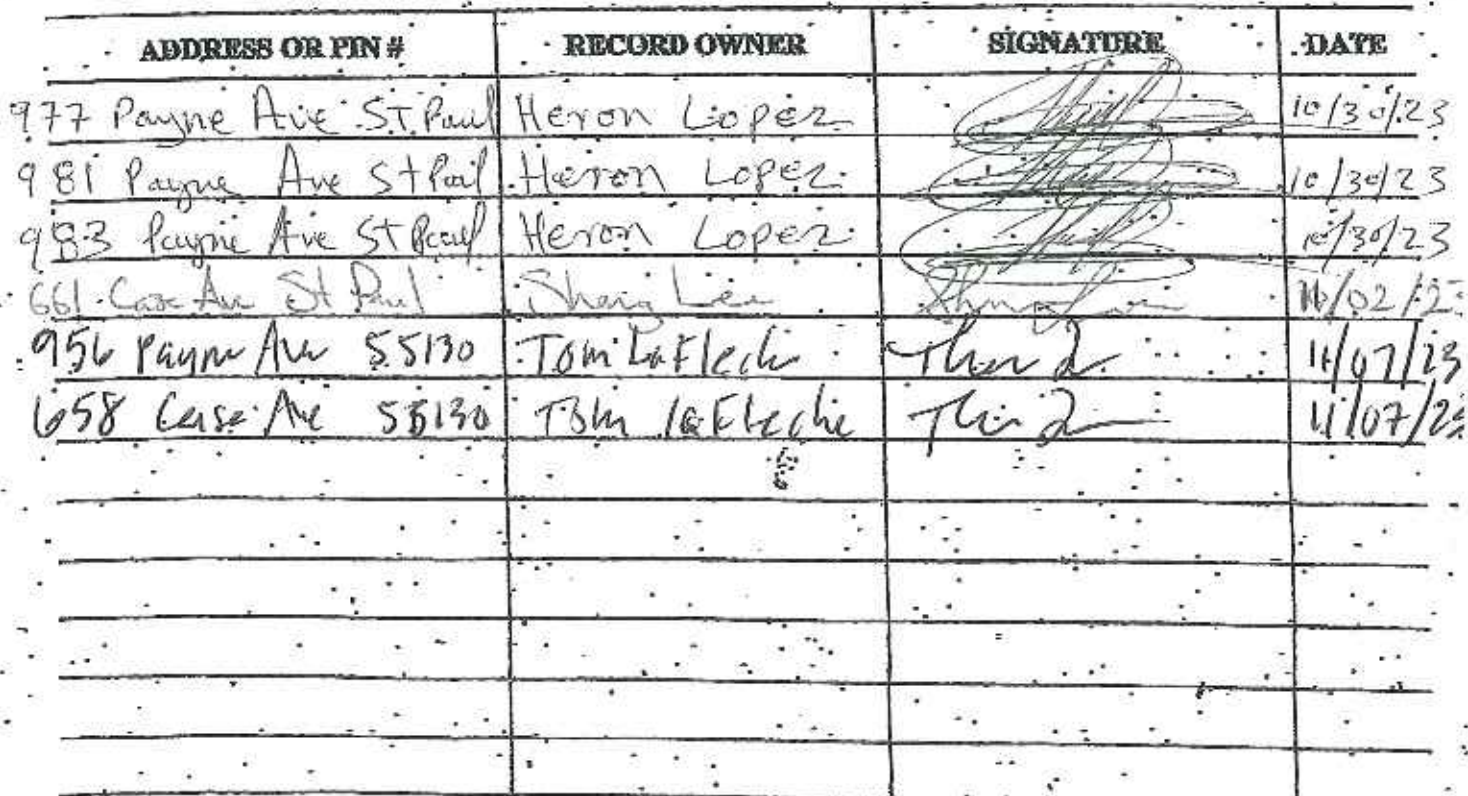 ADDRESS OR PIN # RECORD OWNER SIGNATURE DATE
977 Payne Ave St Paul Heron Lopez 10/30/23
981 Payne Ave St Paul Heron Lopez 10/30/23
983 Payne Ave St Paul Heron Lopez 10/30/23
661 Case Ave St Paul
956 Payne Ave 55130 Tom LaFleche 11/07/23
658 Case Ave 55130 Tom LaFleche